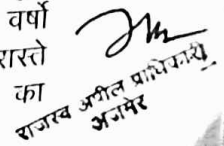 वर्षो
रास्ते
का
राजस्व अपील प्राधिकारी
अजमेर